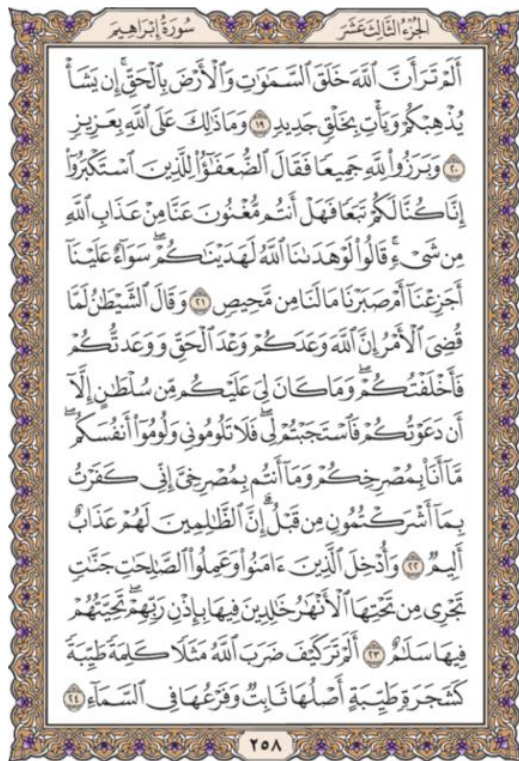 الجزء الثالث عشر
سورة إبراهيم
أَلَمْ تَرَ أَنَّ ٱللَّهَ خَلَقَ ٱلسَّمَٰوَٰتِ وَٱلْأَرْضَ بِٱلْحَقِّ ۚ إِن يَشَأْ
يُذْهِبْكُمْ وَيَأْتِ بِخَلْقٍ جَدِيدٍ ١٩ وَمَا ذَٰلِكَ عَلَى ٱللَّهِ بِعَزِيزٍ
٢٠ وَبَرَزُوا۟ لِلَّهِ جَمِيعًا فَقَالَ ٱلضُّعَفَٰٓؤُا۟ لِلَّذِينَ ٱسْتَكْبَرُوٓا۟
إِنَّا كُنَّا لَكُمْ تَبَعًا فَهَلْ أَنتُم مُّغْنُونَ عَنَّا مِنْ عَذَابِ ٱللَّهِ
مِن شَىْءٍ ۚ قَالُوا۟ لَوْ هَدَىٰنَا ٱللَّهُ لَهَدَيْنَٰكُمْ ۖ سَوَآءٌ عَلَيْنَآ
أَجَزِعْنَآ أَمْ صَبَرْنَا مَا لَنَا مِن مَّحِيصٍ ٢١ وَقَالَ ٱلشَّيْطَٰنُ لَمَّا
قُضِىَ ٱلْأَمْرُ إِنَّ ٱللَّهَ وَعَدَكُمْ وَعْدَ ٱلْحَقِّ وَوَعَدتُّكُمْ
فَأَخْلَفْتُكُمْ ۖ وَمَا كَانَ لِىَ عَلَيْكُم مِّن سُلْطَٰنٍ إِلَّآ
أَن دَعَوْتُكُمْ فَٱسْتَجَبْتُمْ لِى ۖ فَلَا تَلُومُونِى وَلُومُوٓا۟ أَنفُسَكُم ۖ
مَّآ أَنَا۠ بِمُصْرِخِكُمْ وَمَآ أَنتُم بِمُصْرِخِىَّ ۖ إِنِّى كَفَرْتُ
بِمَآ أَشْرَكْتُمُونِ مِن قَبْلُ ۗ إِنَّ ٱلظَّٰلِمِينَ لَهُمْ عَذَابٌ
أَلِيمٌ ٢٢ وَأُدْخِلَ ٱلَّذِينَ ءَامَنُوا۟ وَعَمِلُوا۟ ٱلصَّٰلِحَٰتِ جَنَّٰتٍ
تَجْرِى مِن تَحْتِهَا ٱلْأَنْهَٰرُ خَٰلِدِينَ فِيهَا بِإِذْنِ رَبِّهِمْ ۖ تَحِيَّتُهُمْ
فِيهَا سَلَٰمٌ ٢٣ أَلَمْ تَرَ كَيْفَ ضَرَبَ ٱللَّهُ مَثَلًا كَلِمَةً طَيِّبَةً
كَشَجَرَةٍ طَيِّبَةٍ أَصْلُهَا ثَابِتٌ وَفَرْعُهَا فِى ٱلسَّمَآءِ ٢٤
٢٥٨